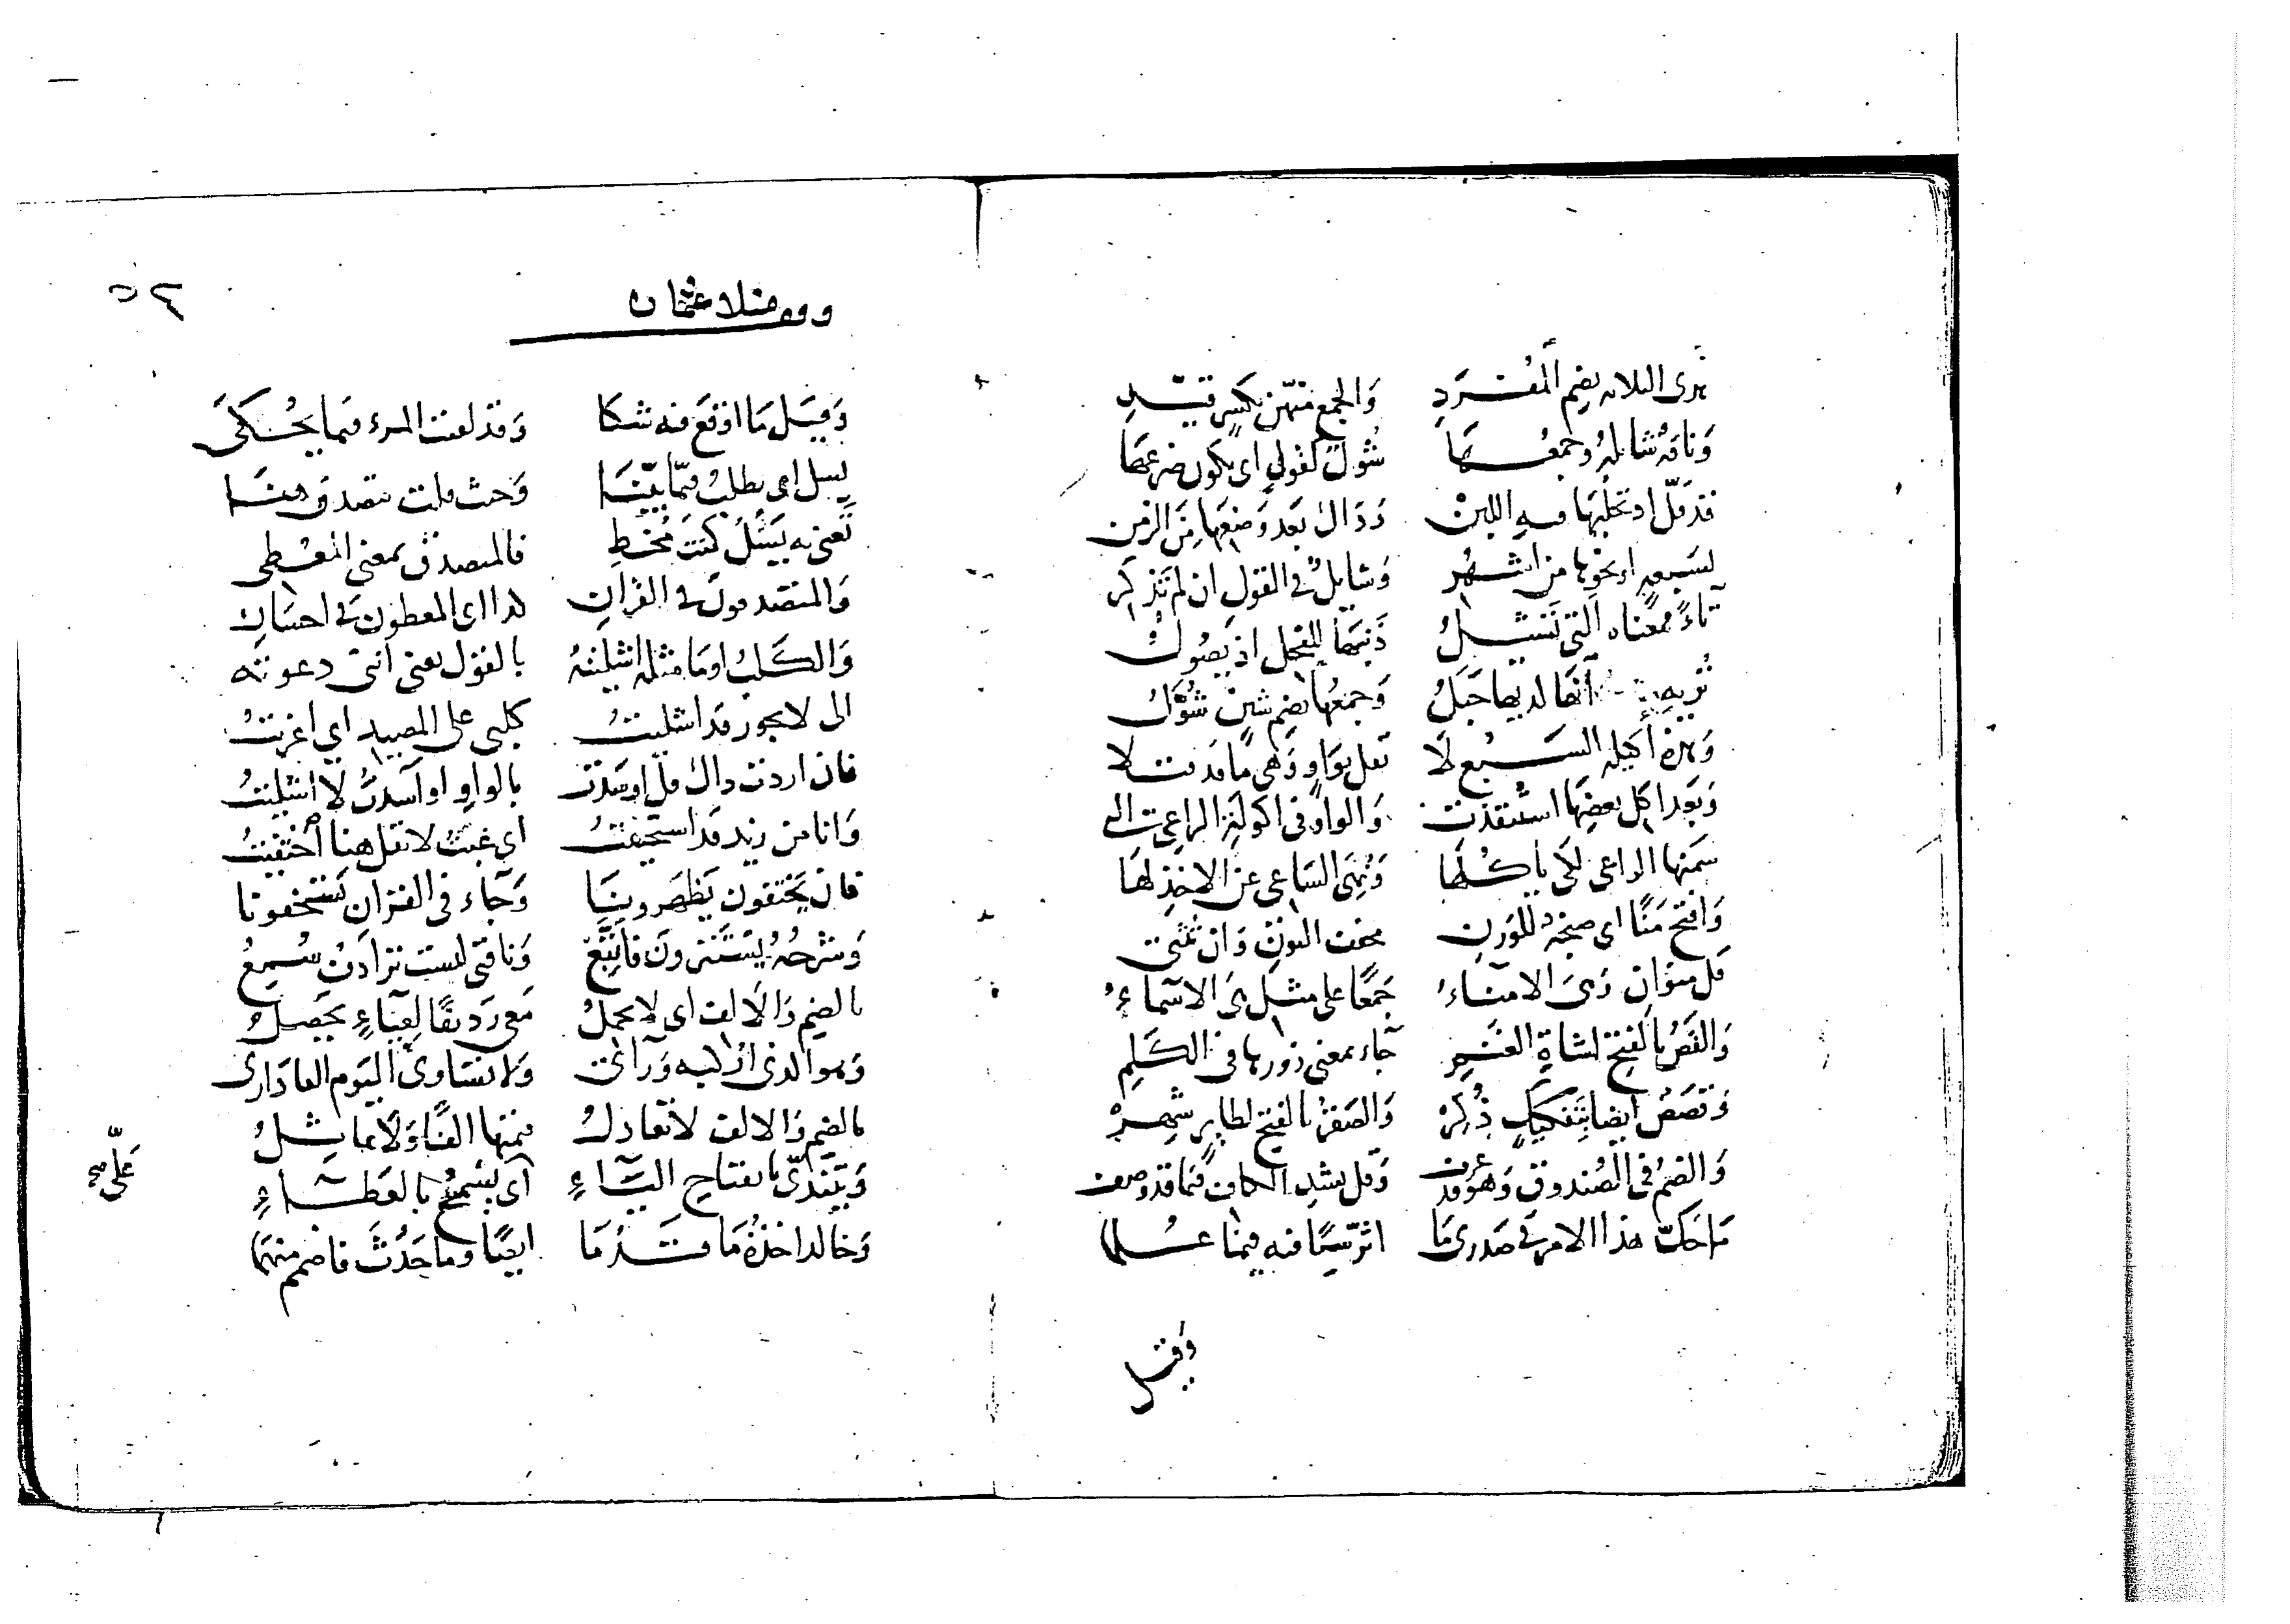 هذى الثلاث بضم المفرد والجمع منهن بكسر قيد
وناقة شائلة وجمعها شول كقولي اى يكون ضرعها
قد قل اذ تحلبها فيه اللبن وذاك بعد وضعها من الزمن
لسبعة او نحوها من اشهر وشايل في القول ان لم تذكر
تاءً فمعناه التي تشيل ذنبها للفحل اذ يصول
تريه انها لديها حبل وجمعها بضم شين شول
وهذه أكيلة السبع لا تقل بواو وهي ما قد
وبعد اكل بعضها استنقذت والواو في اكولة الراعي التي
سمنها الراعي لكي يأكلها ونهي الساعي عن الاخذ لها
وافتح مَنًا اى صنجة للوزن مخفف النون وان تثني
قل منوان وهى الامناء جمعًا على مثل هى الاسماء
والقص بالفتح لشاة الغنم جاء بمعنى زورها في الكلم
وقصص ايضا بتفكيك ذكر والصقر بالفتح لطاير شهر
والضم في الصندوق وهو قد عرف وقل بشد الكاف فيما قد وصف
ما حكّ هذا الامر في صدرى ما اثر شيئا فيه فيما علما
وقيل
وقف منلا عثمان
٥٢
وقيل ما اوقع فيه شكا وقد لعنت المرء فيما يحكى
يسل اى يطلب فيما بيّنا وحيث قلت يتصدق هنا
تعنى به يسئل كنت مخط فالمتصدق بمعنى المعطى
والمتصدقون في القران هذا اى المعطون في احسان
والكلب او ما مثله اشليته بالقول يعنى اننى دعوته
الى لا يجوز قد اشليت كلبى على الصيد اي اغريت
فان اردت ذاك قل اوسدت بالواو او آسدت لا اشليت
وانا من زيد قد استخفيت اى غبت لا تقل هنا اختفيت
فان يختفون يظهرونيا وجاء في القران يستخفونا
وشرحه يستترون فاتبع وناقتى ليست ترادف سمع
بالضم ذا الالف اى لا تحمل معى رديفا لعياء يحصل
وهو الذى اركبه ورائى ولا تساوى اليوم العا دارى
بالضم ذا الالف لا تعادل قيمتها الفا ولا تماثل
ويتندّى بانفتاح الياء اى يسمح بالعطاء
وخالدا خذه ما قدما ايضًا وما حدث فاضمم منهما
على